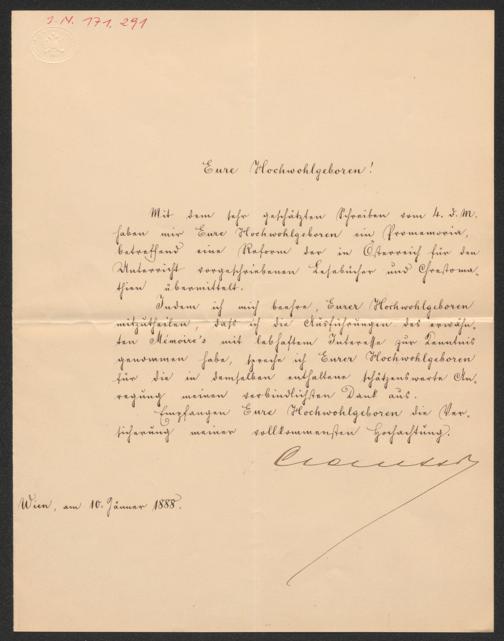 I. N. 171.291
Eure Hochwohlgeboren!
Mit dem sehr geschätzten Schreiben vom 4. d. M.
haben mir Eure Hochwohlgeboren ein Promemoria,
betreffend eine Reform der in Österreich für den
Unterricht vorgeschriebenen Lesebücher und Chrestoma„
thien übermittelt.
Indem ich mich beehre, Eurer Hochwohlgeboren
mitzutheilen, daß ich die Ausführungen des erwähn„
ten Mémoire's mit lebhaftem Interesse zur Kenntnis
genommen habe, spreche ich Eurer Hochwohlgeboren
für die in demselben enthaltene schätzenswerte An„
regung meinen verbindlichsten Dank aus.
Empfangen Eure Hochwohlgeboren die Ver„
sicherung meiner vollkommensten Hochachtung.
Wien, am 10. Jänner 1888.